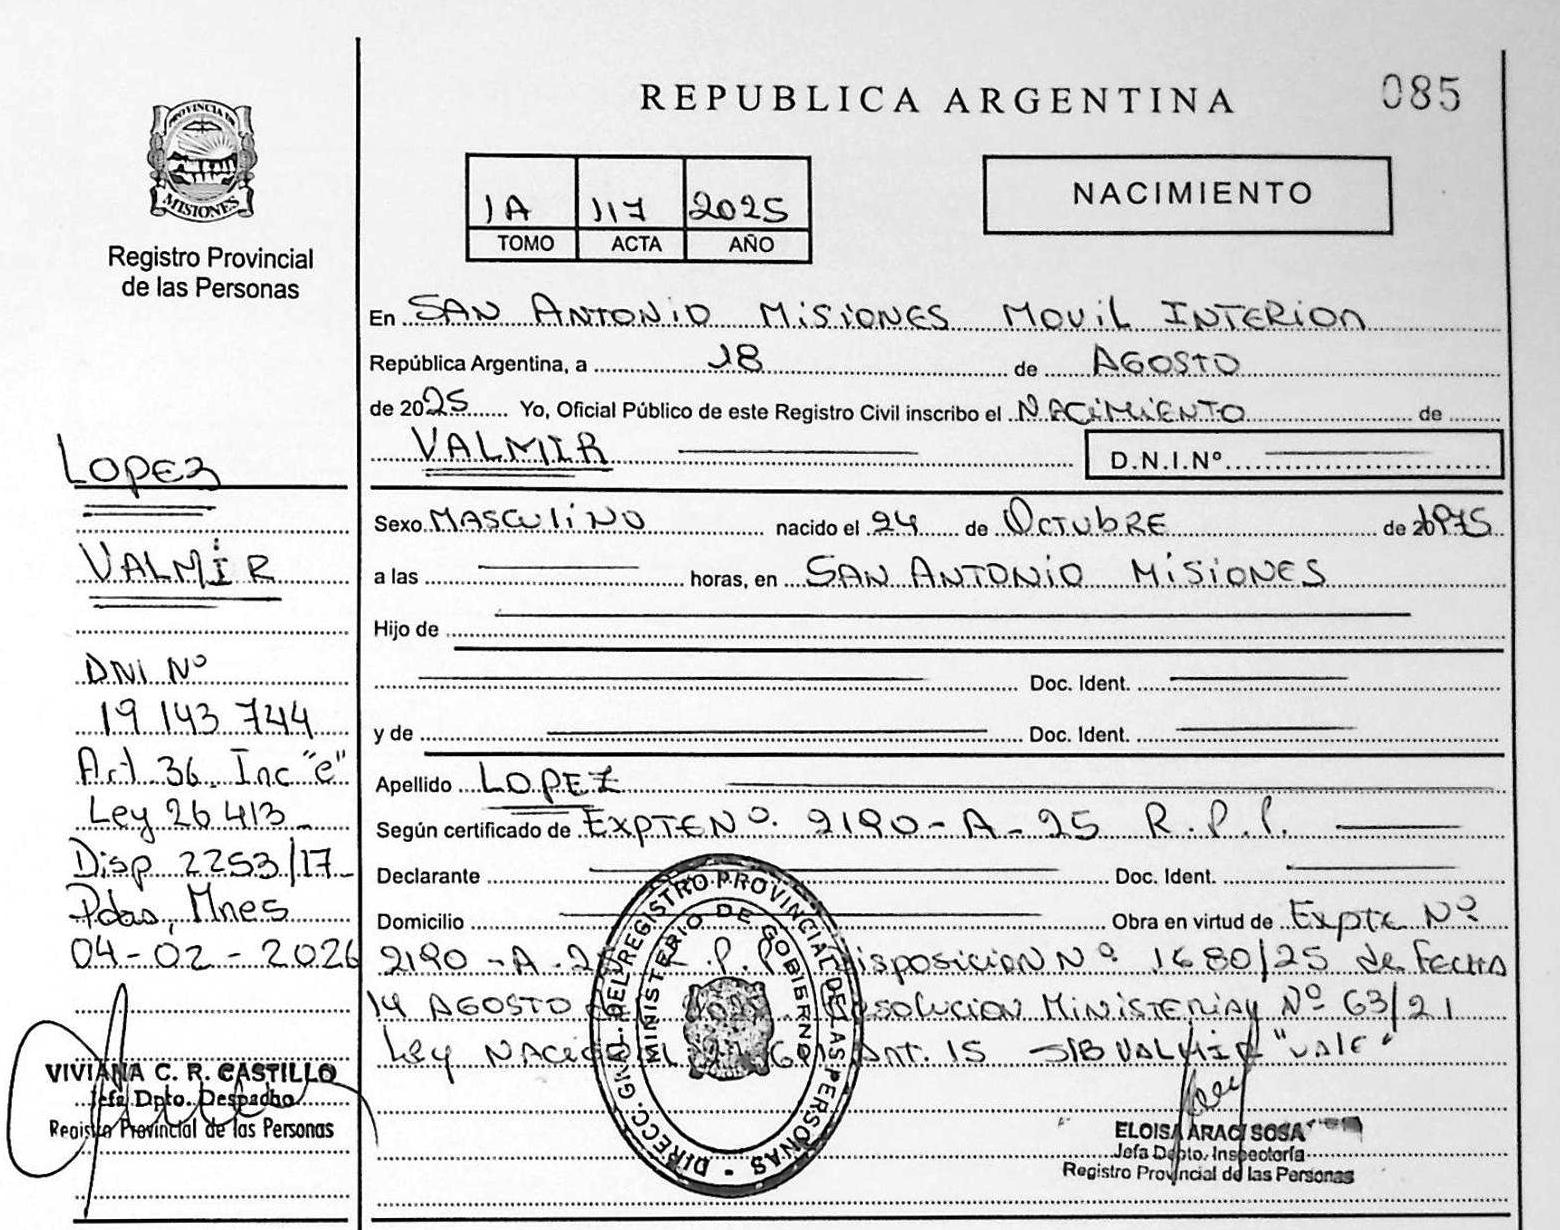 REPUBLICA ARGENTINA
085
PROVINCIA DE
MISIONES
Registro Provincial
de las Personas
1A 117 2025
TOMO ACTA AÑO
NACIMIENTO
En SAN ANTONIO MISIONES MOVIL INTERIOR
República Argentina, a 18 de AGOSTO
de 2025 Yo, Oficial Público de este Registro Civil inscribo el NACIMIENTO de
VALMIR D.N.I.Nº
Sexo MASCULINO nacido el 24 de OCTUBRE de 1975
a las horas, en SAN ANTONIO MISIONES
Hijo de
Doc. Ident.
y de Doc. Ident.
Apellido LOPEZ
Según certificado de EXPTE Nº. 2190-A-25 R.P.P.
Declarante Doc. Ident.
Domicilio Obra en virtud de Expte Nº
2190-A-25 R.P.P. Disposicion Nº 1680/25 de Fecha
14 AGOSTO 2025 Resolucion Ministerial Nº 63/21
Ley Nacional Art. 15 S/B VALMIR "VALE"
ELOISA ARACI SOSA
Jefa Dpto. Inspectoría
Registro Provincial de las Personas
DIRECC. GRAL. DEL REGISTRO PROVINCIAL DE LAS PERSONAS
MINISTERIO DE GOBIERNO
LOPEZ
VALMIR
DNI Nº
19 143 744
Art 36 Inc "e"
Ley 26 413
Disp 2253/17
Pdas, Mnes
04-02-2026
VIVIANA C. R. CASTILLO
Jefa Dpto. Despacho
Registro Provincial de las Personas